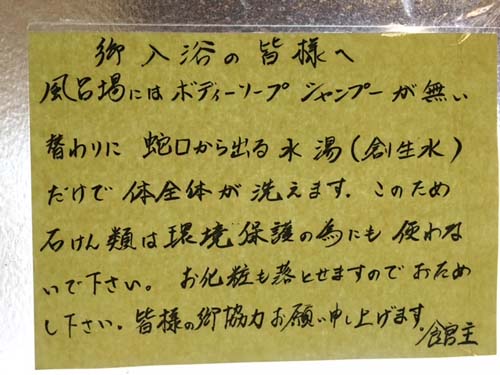 御入浴の皆様へ
風呂場にはボディーソープ シャンプーが無い
替わりに 蛇口から出る水湯(創生水)
だけで体全体が洗えます。このため
石けん類は環境保護の為にも使わな
いで下さい。 お化粧も落とせますのでおため
し下さい。皆様の御協力お願い申し上げます。
館主